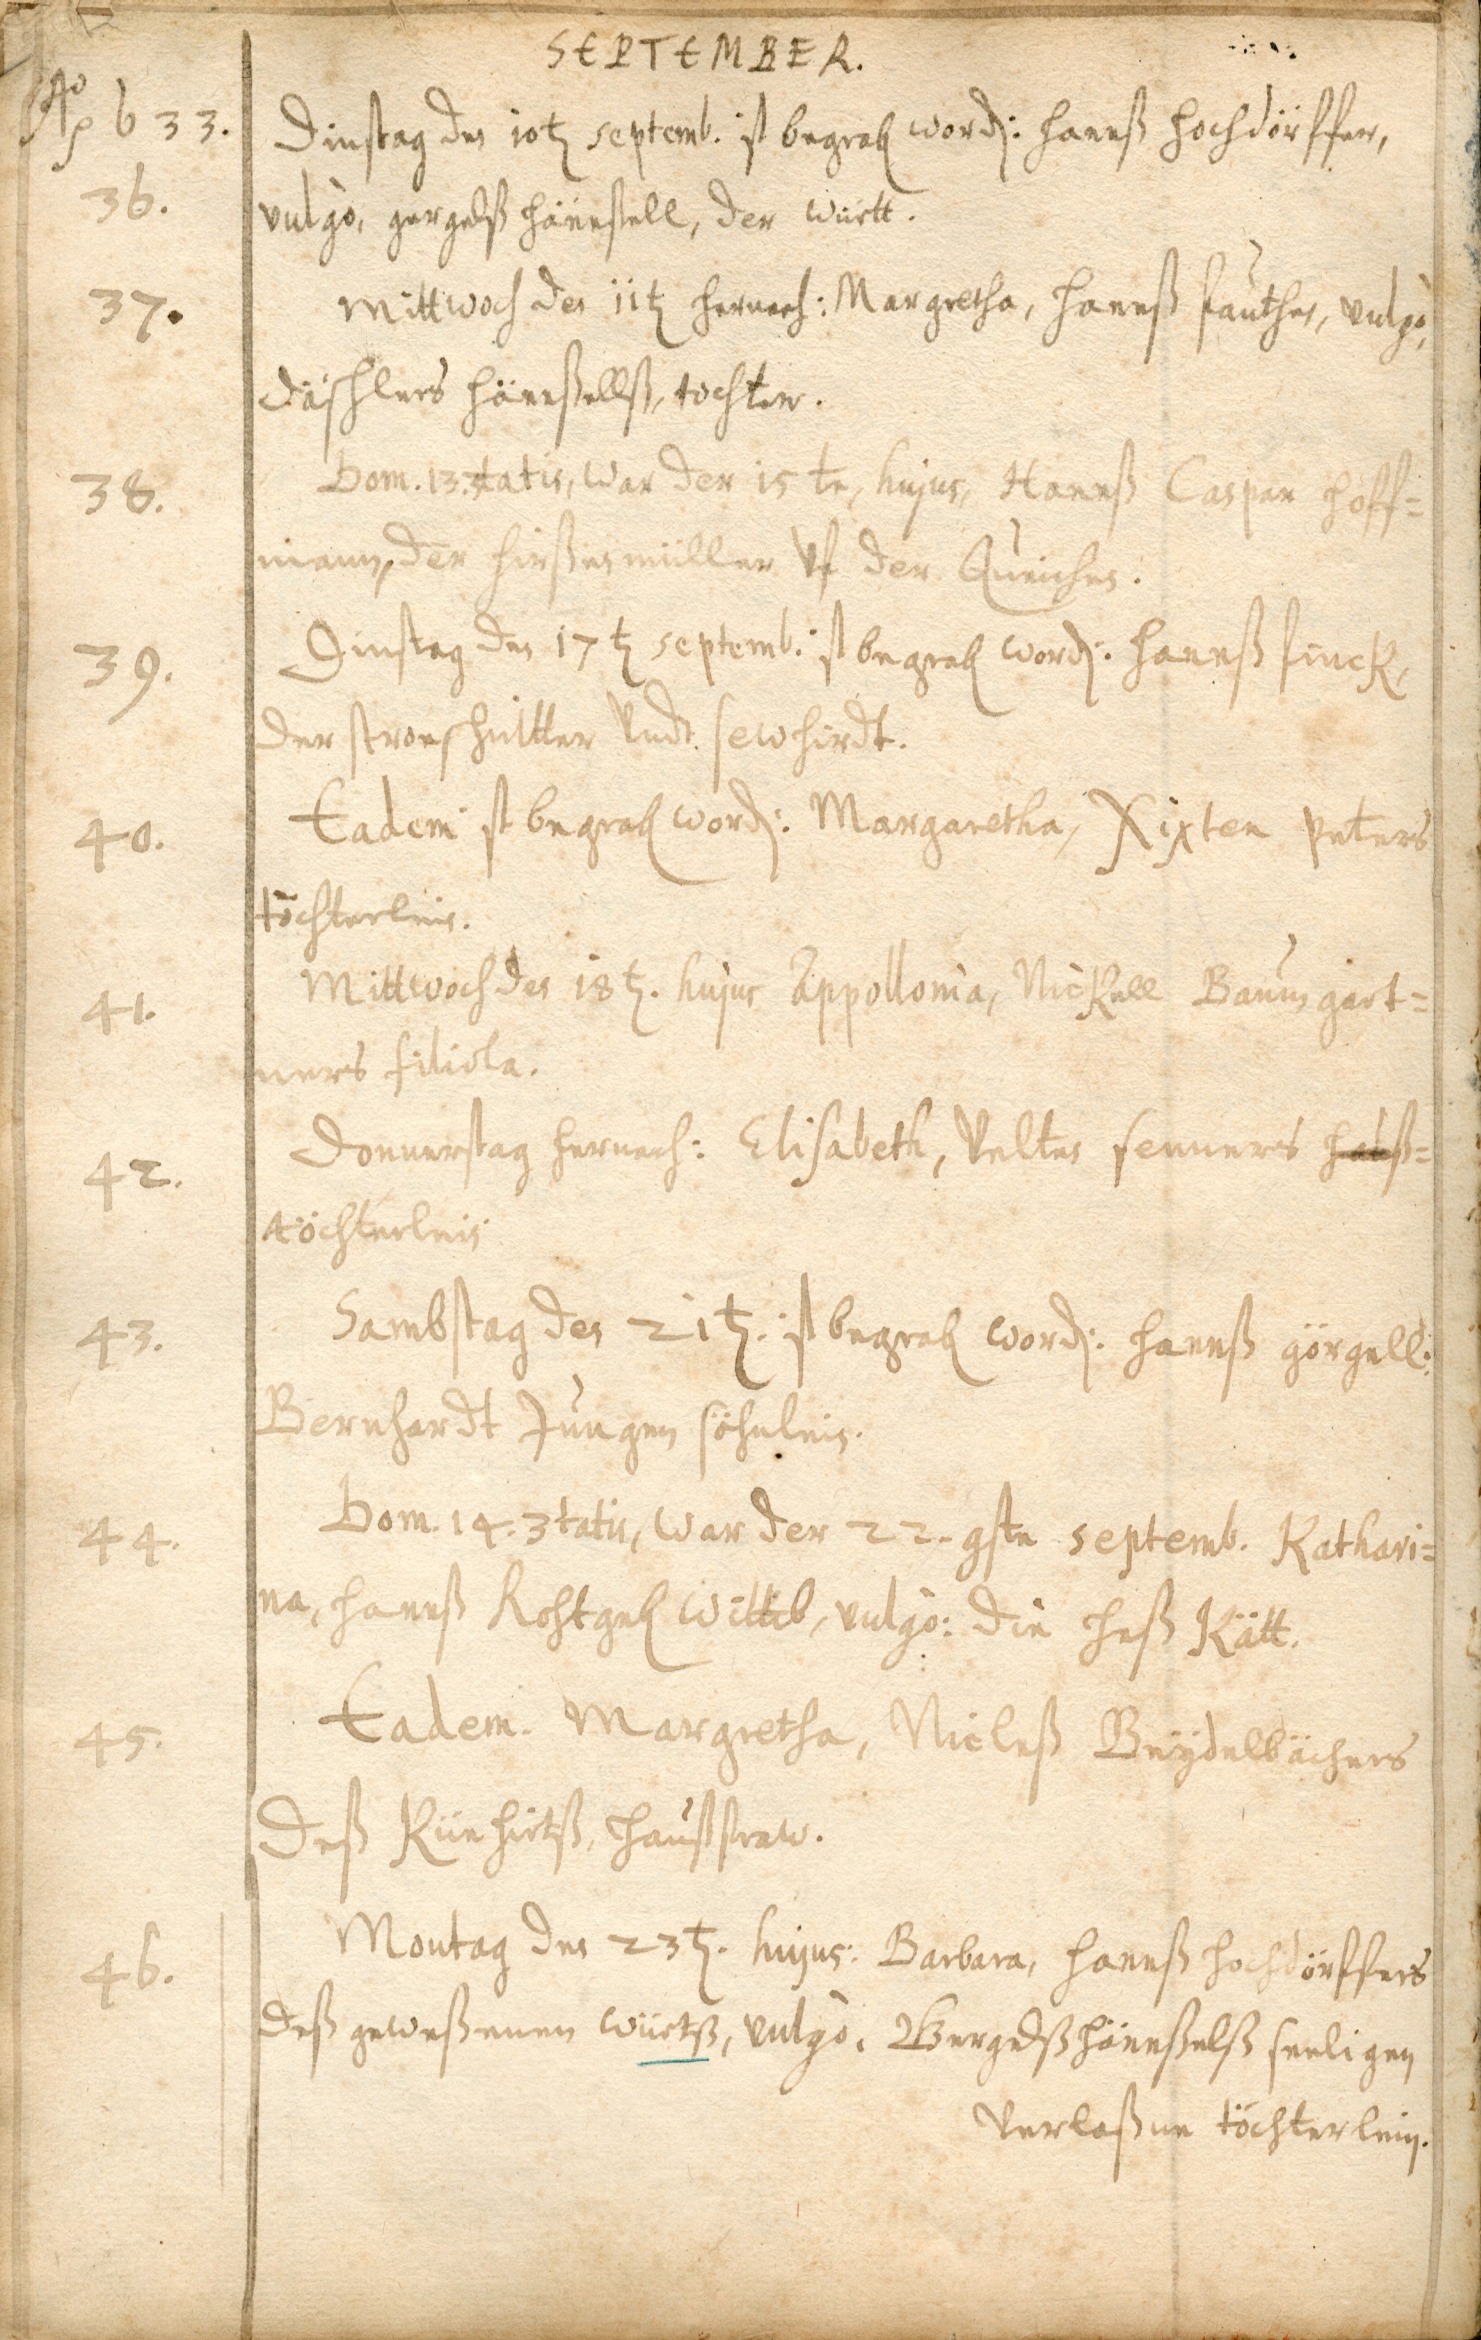 SEPTEMBER.
Ao 1633.
36. Dinstag den 10t. Septemb. ist begrab. word.: Hannß Hochdörffer,
vulgò, gergelß hännßell, der württ.
37. Mittwoch den 11t. hernach: Margretha, Hannß Fauthen, vulgò,
Däschlers hännßellß, tochter.
38. Dom. 13. 3tatis, war der 15te, hujus, Hannß Caspar Hoff=
mann, der hirßenmüller uf der Queichen.
39. Dinstag den 17t. Septemb. ist begrab. word.: Hannß Finck,
der stroschnitter undt sewhirdt.
40. Eadem ist begrab. word.: Margaretha, Xixten Peters
töchterlein.
41. Mittwoch den 18t. hujus Appollonia, Nickell Baumgart=
ners filiola.
42. Donnerstag hernach: Elisabeth, Velten Senners hauß=
töchterlein
43. Sambstag den 21t. ist begrab. word.: Hannß görgell:
Bernhardt Jungen söhnlein.
44. Dom. 14. 3tatis, war der 22.gste Septemb. Kathari=
na, Hannß wittib, vulgò: die Heß Kätt.
45. Eadem. Margretha, Nicleß Beÿdelbächers
deß Küehirtß, haußfraw.
46. Montag den 23t. hujus: Barbara, Hannß Hochdörffers
deß geweßenen würtß, vulgò. Gergelß hännßelß seeligen
verlaßne töchterlein.